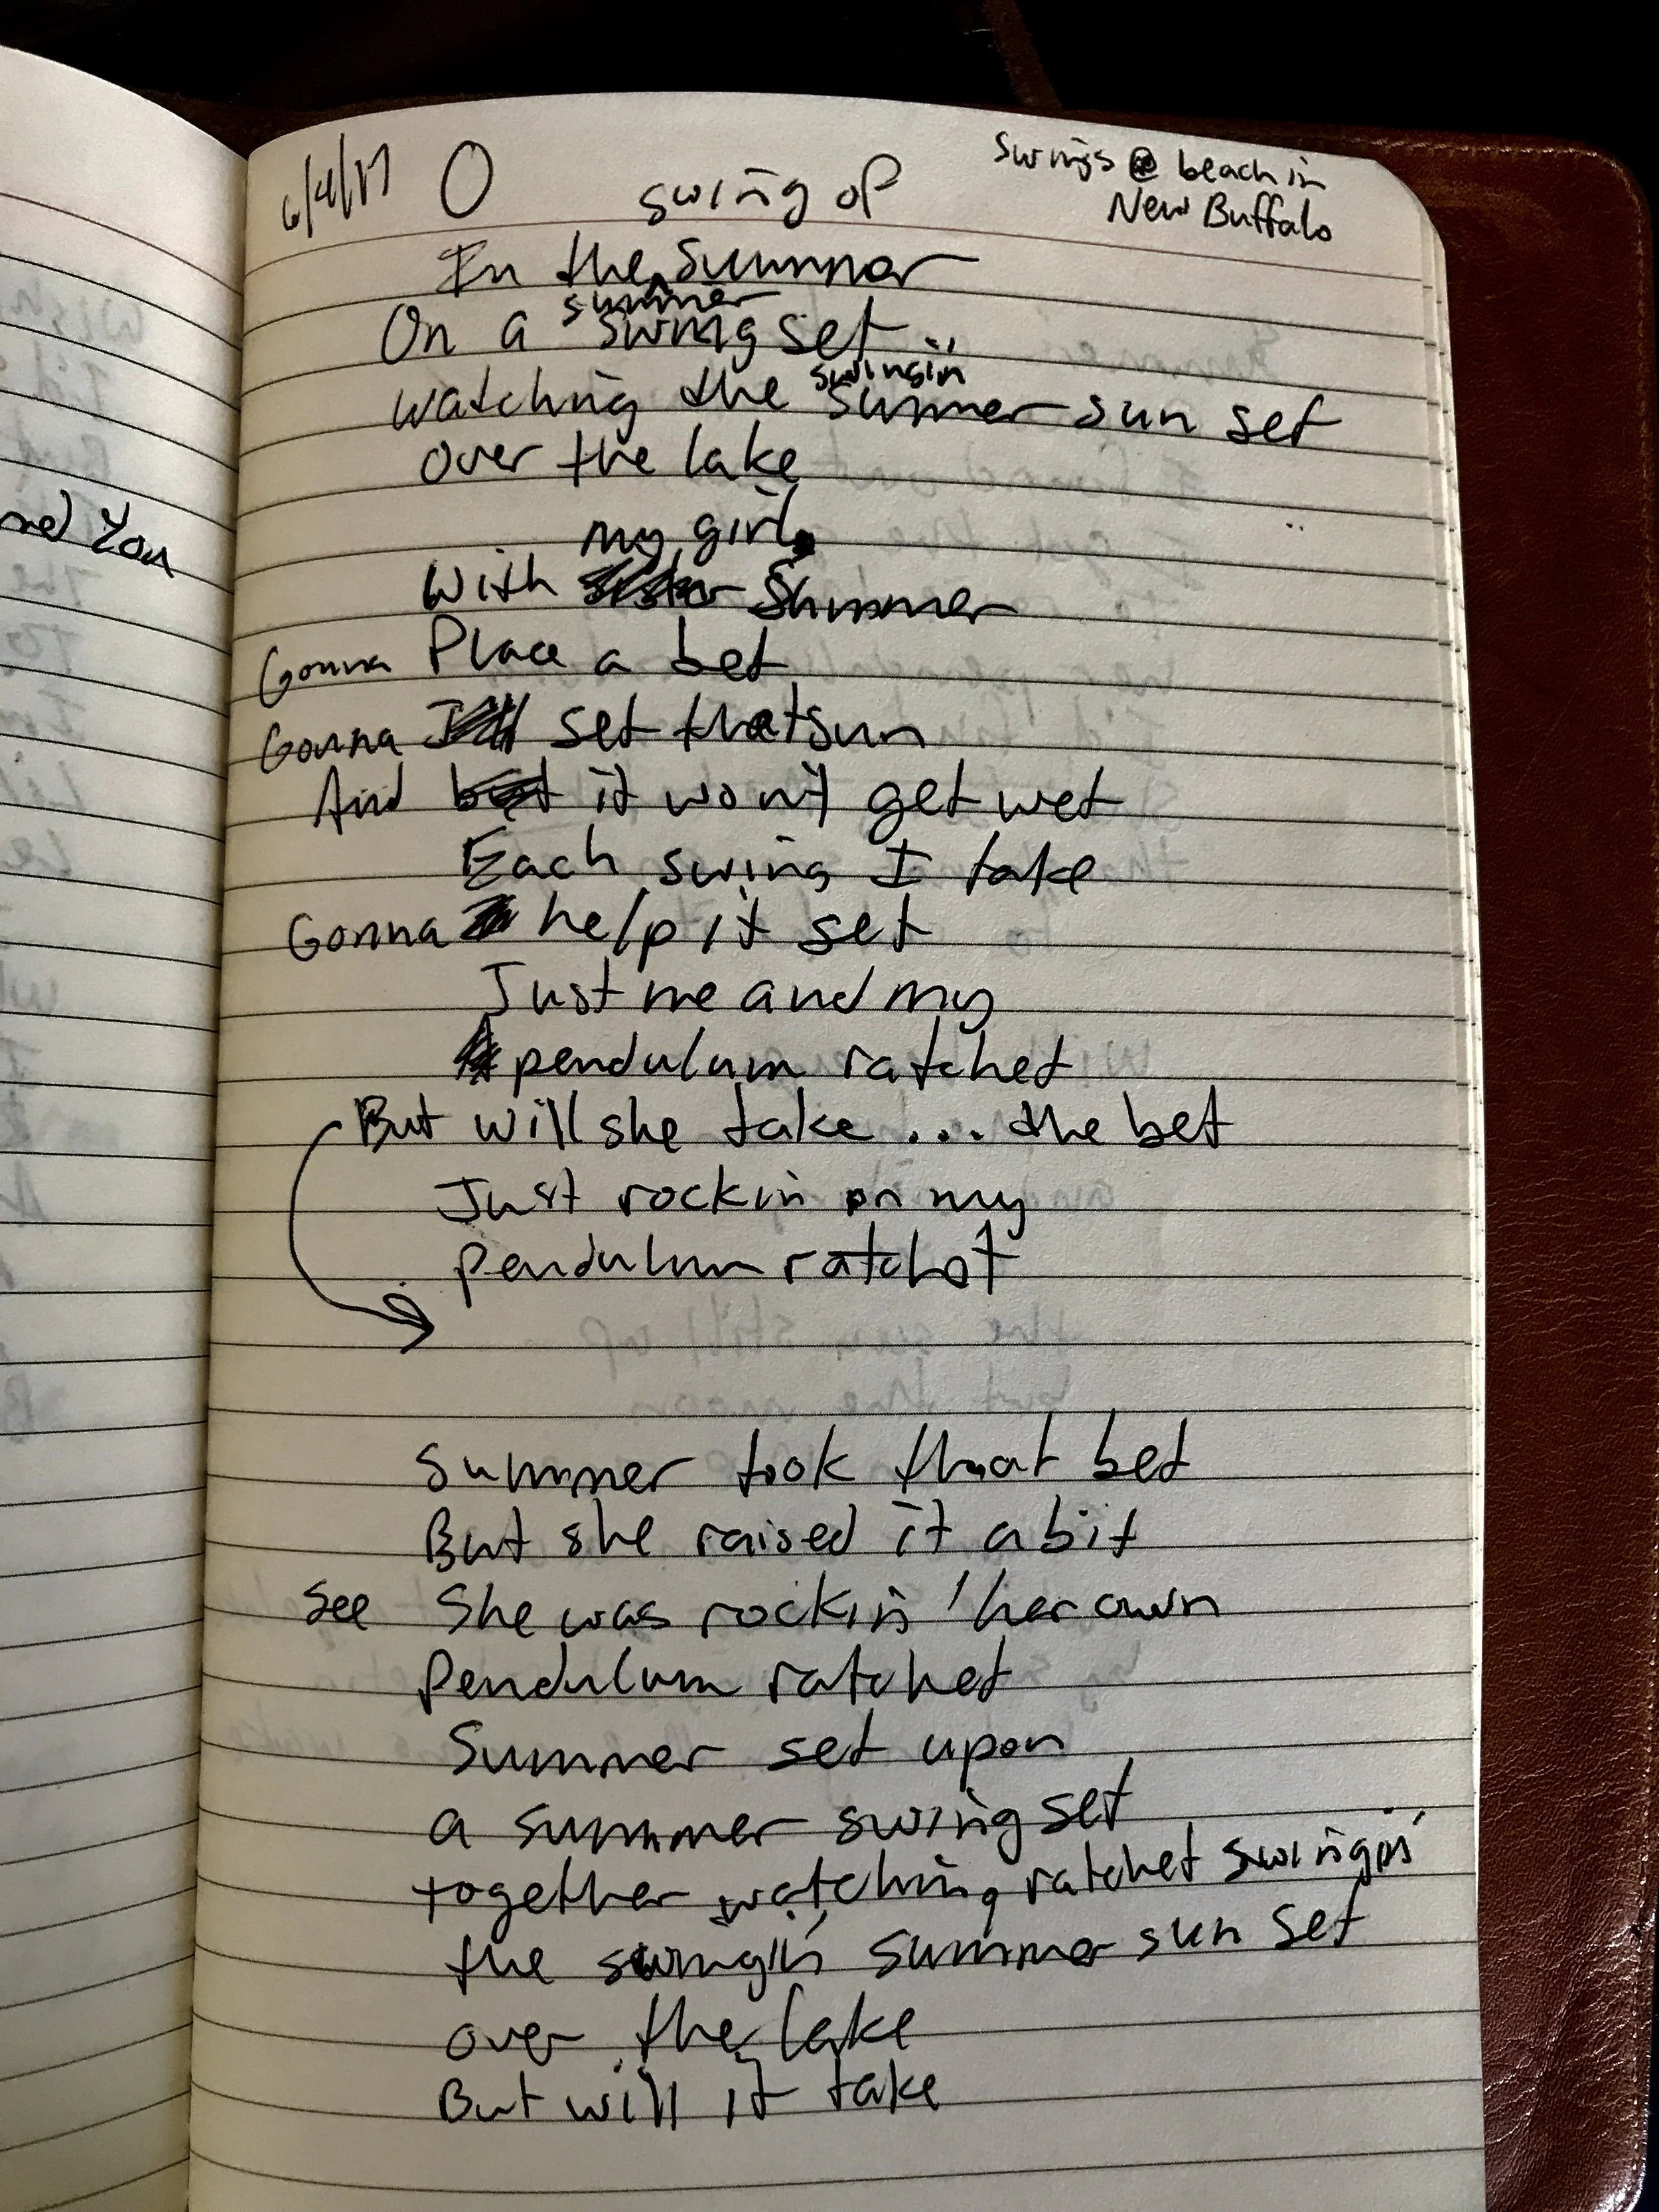 6/4/17
swings @ beach in
New Buffalo
swing of
In the summer
summer
On a swing set..
swingin
watching the summer sun set
over the lake
my girl,
With Summer
Gonna Place a bet
Gonna set that sun
And it won't get wet
Each swing I take
Gonna help it set
Just me and my
pendulum ratchet
But will she take ... the bet
Just rockin on my
pendulum ratchet
Summer took that bet
But she raised it a bit
See She was rockin' her own
Pendulum ratchet
Summer set upon
a summer swing set
together watching, ratchet swingin'
the swingin' summer sun set
over the lake
But will it take
ned You